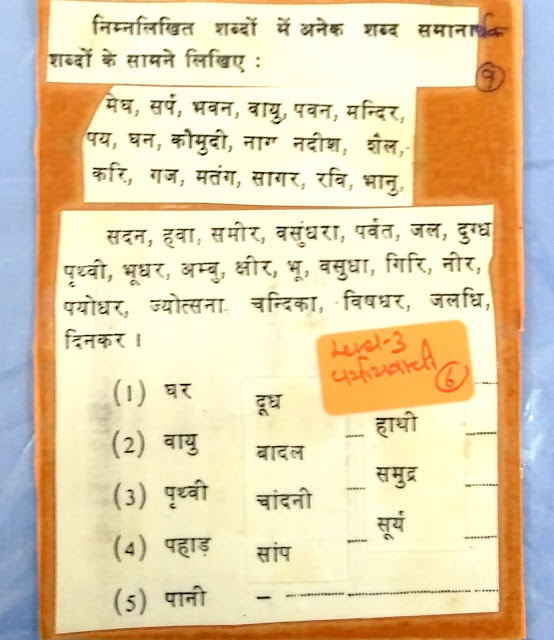 निम्नलिखित शब्दों में अनेक शब्द समानार्थक
शब्दों के सामने लिखिए :
9
मेघ, सर्प, भवन, वायु, पवन, मन्दिर,
पय, घन, कौमुदी, नाग नदीश, शैल,
करि, गज, मतंग, सागर, रवि, भानु,
सदन, हवा, समीर, वसुंधरा, पर्वत, जल, दुग्ध
पृथ्वी, भूधर, अम्बु, क्षीर, भू, वसुधा, गिरि, नीर,
पयोधर, ज्योत्सना चन्दिका, विषधर, जलधि,
दिनकर ।
Level-3
पर्यायवाची
6
(1) घर दूध
हाथी
(2) वायु बादल
समुद्र
(3) पृथ्वी चांदनी
सूर्य
(4) पहाड़ सांप
(5) पानी –